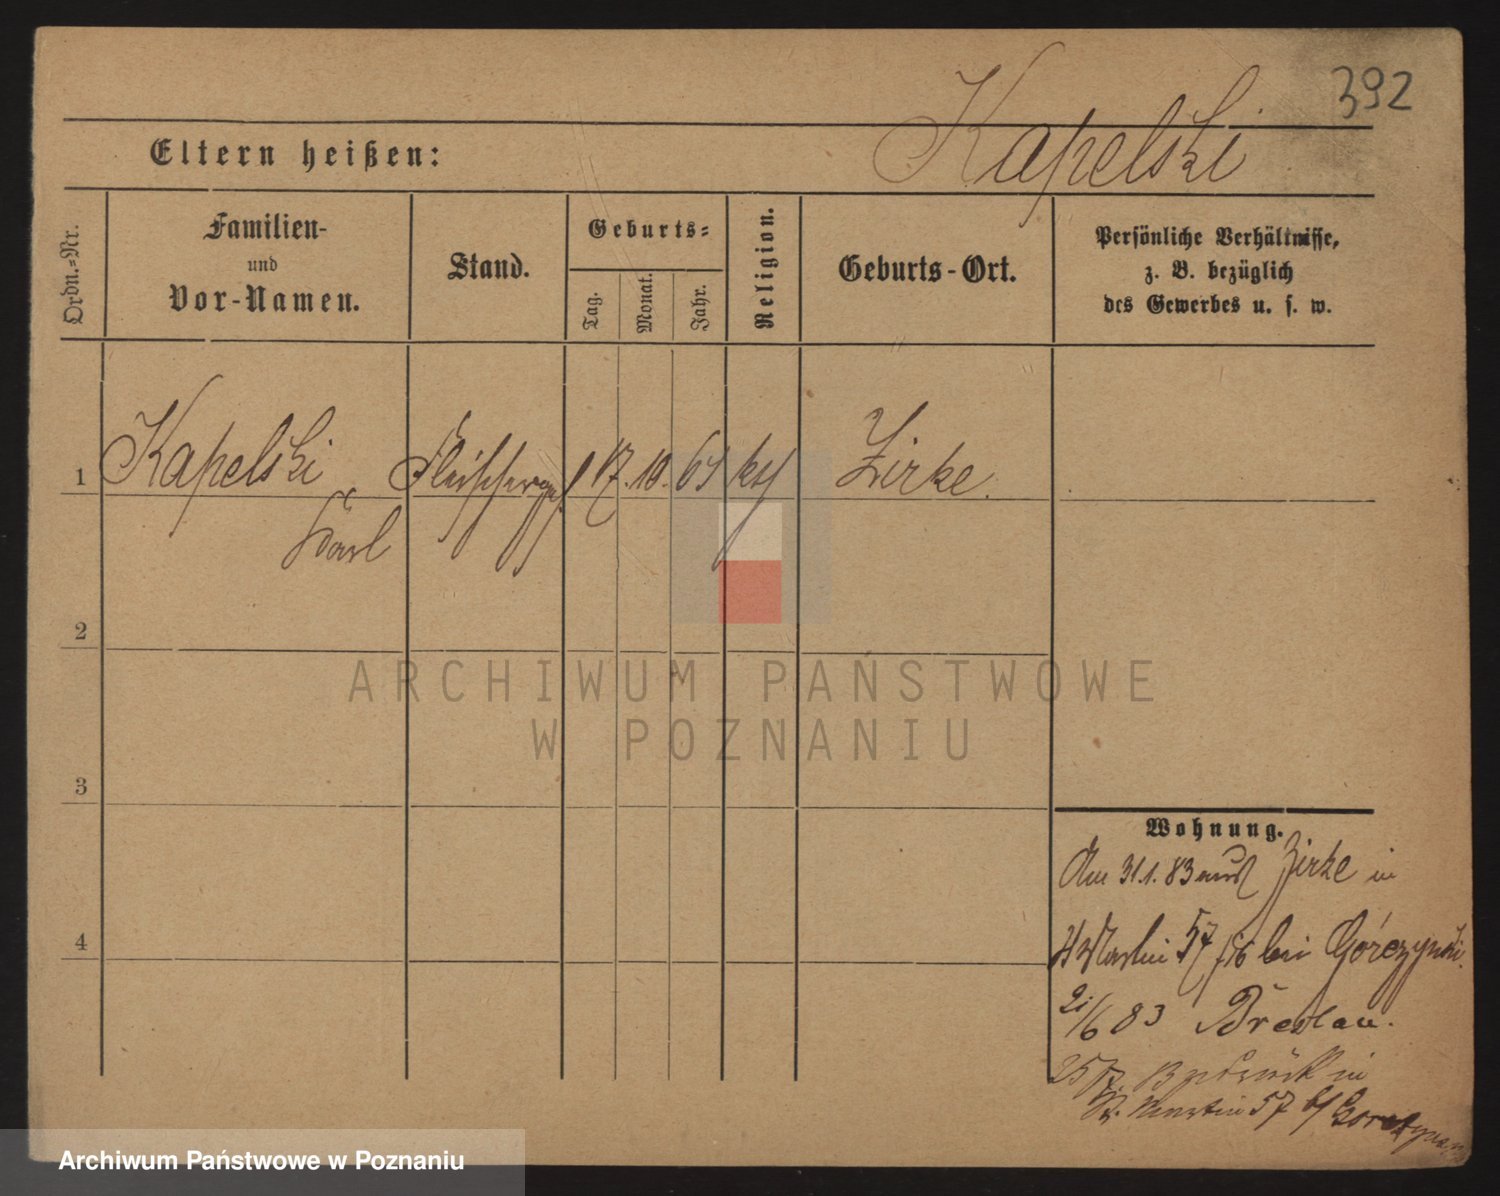 392
Kapelski
Eltern heißen:
Ordn.-Nr.
Familien-
und
Vor-Namen.
Stand.
Geburts-
Tag.
Monat.
Jahr.
Religion.
Geburts-Ort.
Persönliche Verhältnisse,
z. B. bezüglich
des Gewerbes u. s. w.
1 Kapelski Fleischerges. 17. 10. kth Zirke.
Karl
2
3
4
Wohnung.
Am 31.1.83 aus Zirke in
St Martin 57 bei Górczynski.
21/6 83 Breslau.
25/7. zurück in
St. Martin 57 b/
ARCHIWUM PAŃSTWOWE
W POZNANIU
Archiwum Państwowe w Poznaniu